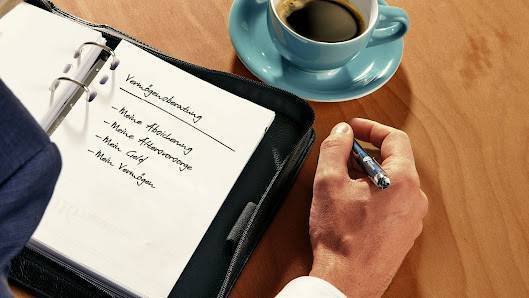 Vermögensberatung
- Meine Absicherung
- Meine Altersvorsorge
- Mein Geld
- Mein Vermögen